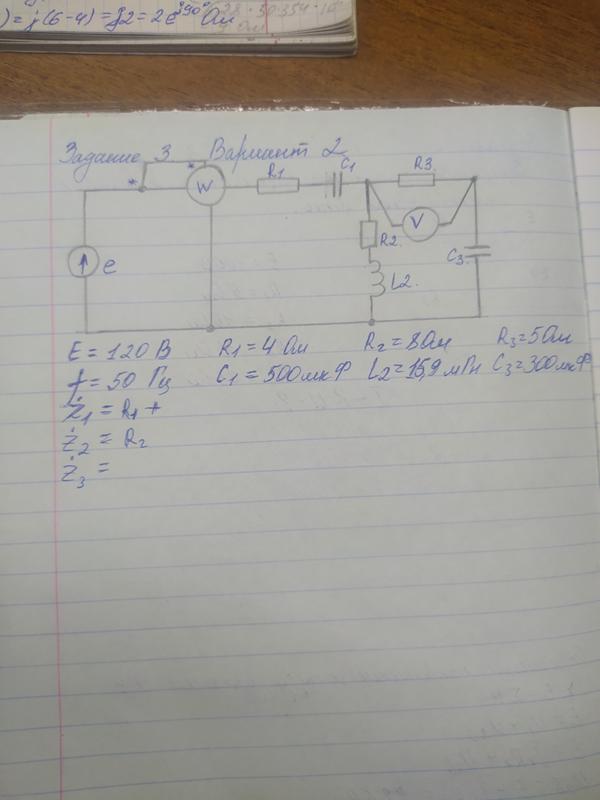 ) = j(6-4) = j2 = 2e^j90° Ом
Задание 3 Вариант 2
* * W R1 C1 R3
V
R2
C3
e L2
E = 120 В R1 = 4 Ом R2 = 8 Ом R3 = 5 Ом
f = 50 Гц C1 = 500 мкФ L2 = 15,9 мГн C3 = 300 мкФ
Z1 = R1 +
Z2 = R2
Z3 =